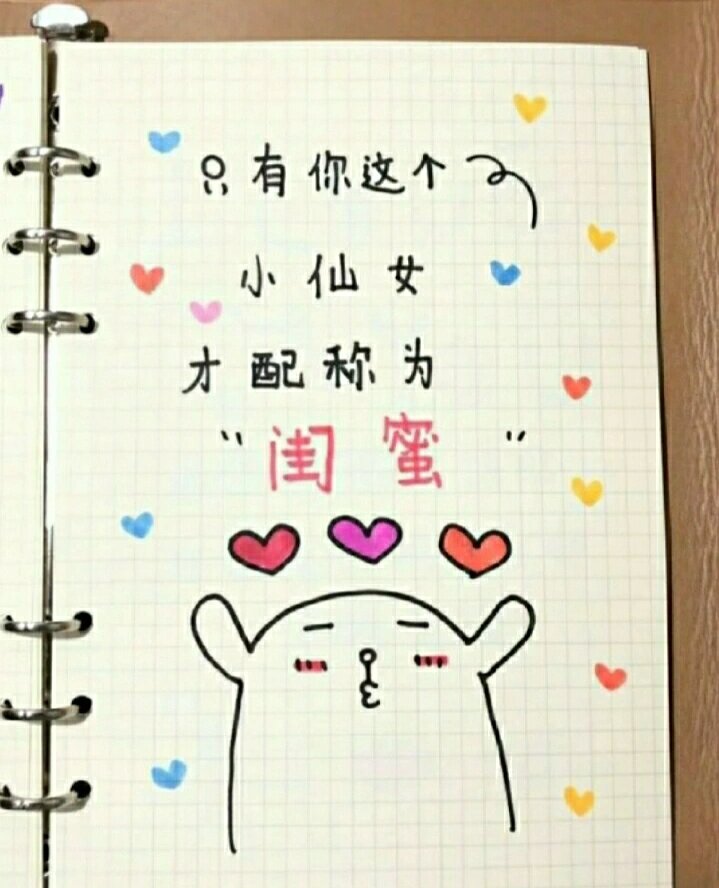 只有你这个
小仙女
才配称为
"闺蜜"